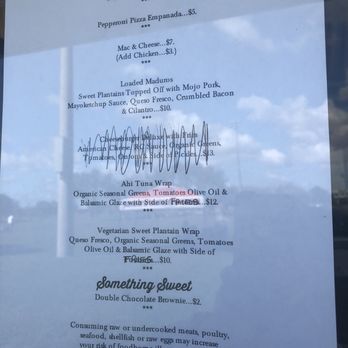 Pepperoni Pizza Empanada...$5.
***
Mac & Cheese...$7.
(Add Chicken...$3.)
***
Loaded Maduros
Sweet Plantains Topped Off with Mojo Pork,
Mayoketchup Sauce, Queso Fresco, Crumbled Bacon
& Cilantro...$10.
***
Cheeseburger Deluxe with Fries
American Cheese, RG Sauce, Organic Greens,
Tomatoes, Onions & Side of Pickles...$13.
***
Ahi Tuna Wrap
Organic Seasonal Greens, Tomatoes Olive Oil &
Balsamic Glaze with Side of FRIES...$12.
***
Vegetarian Sweet Plantain Wrap
Queso Fresco, Organic Seasonal Greens, Tomatoes
Olive Oil & Balsamic Glaze with Side of
FRIES...$10.
***
Something Sweet
Double Chocolate Brownie...$2.
***
Consuming raw or undercooked meats, poultry,
seafood, shellfish or raw eggs may increase
your risk of foodborne